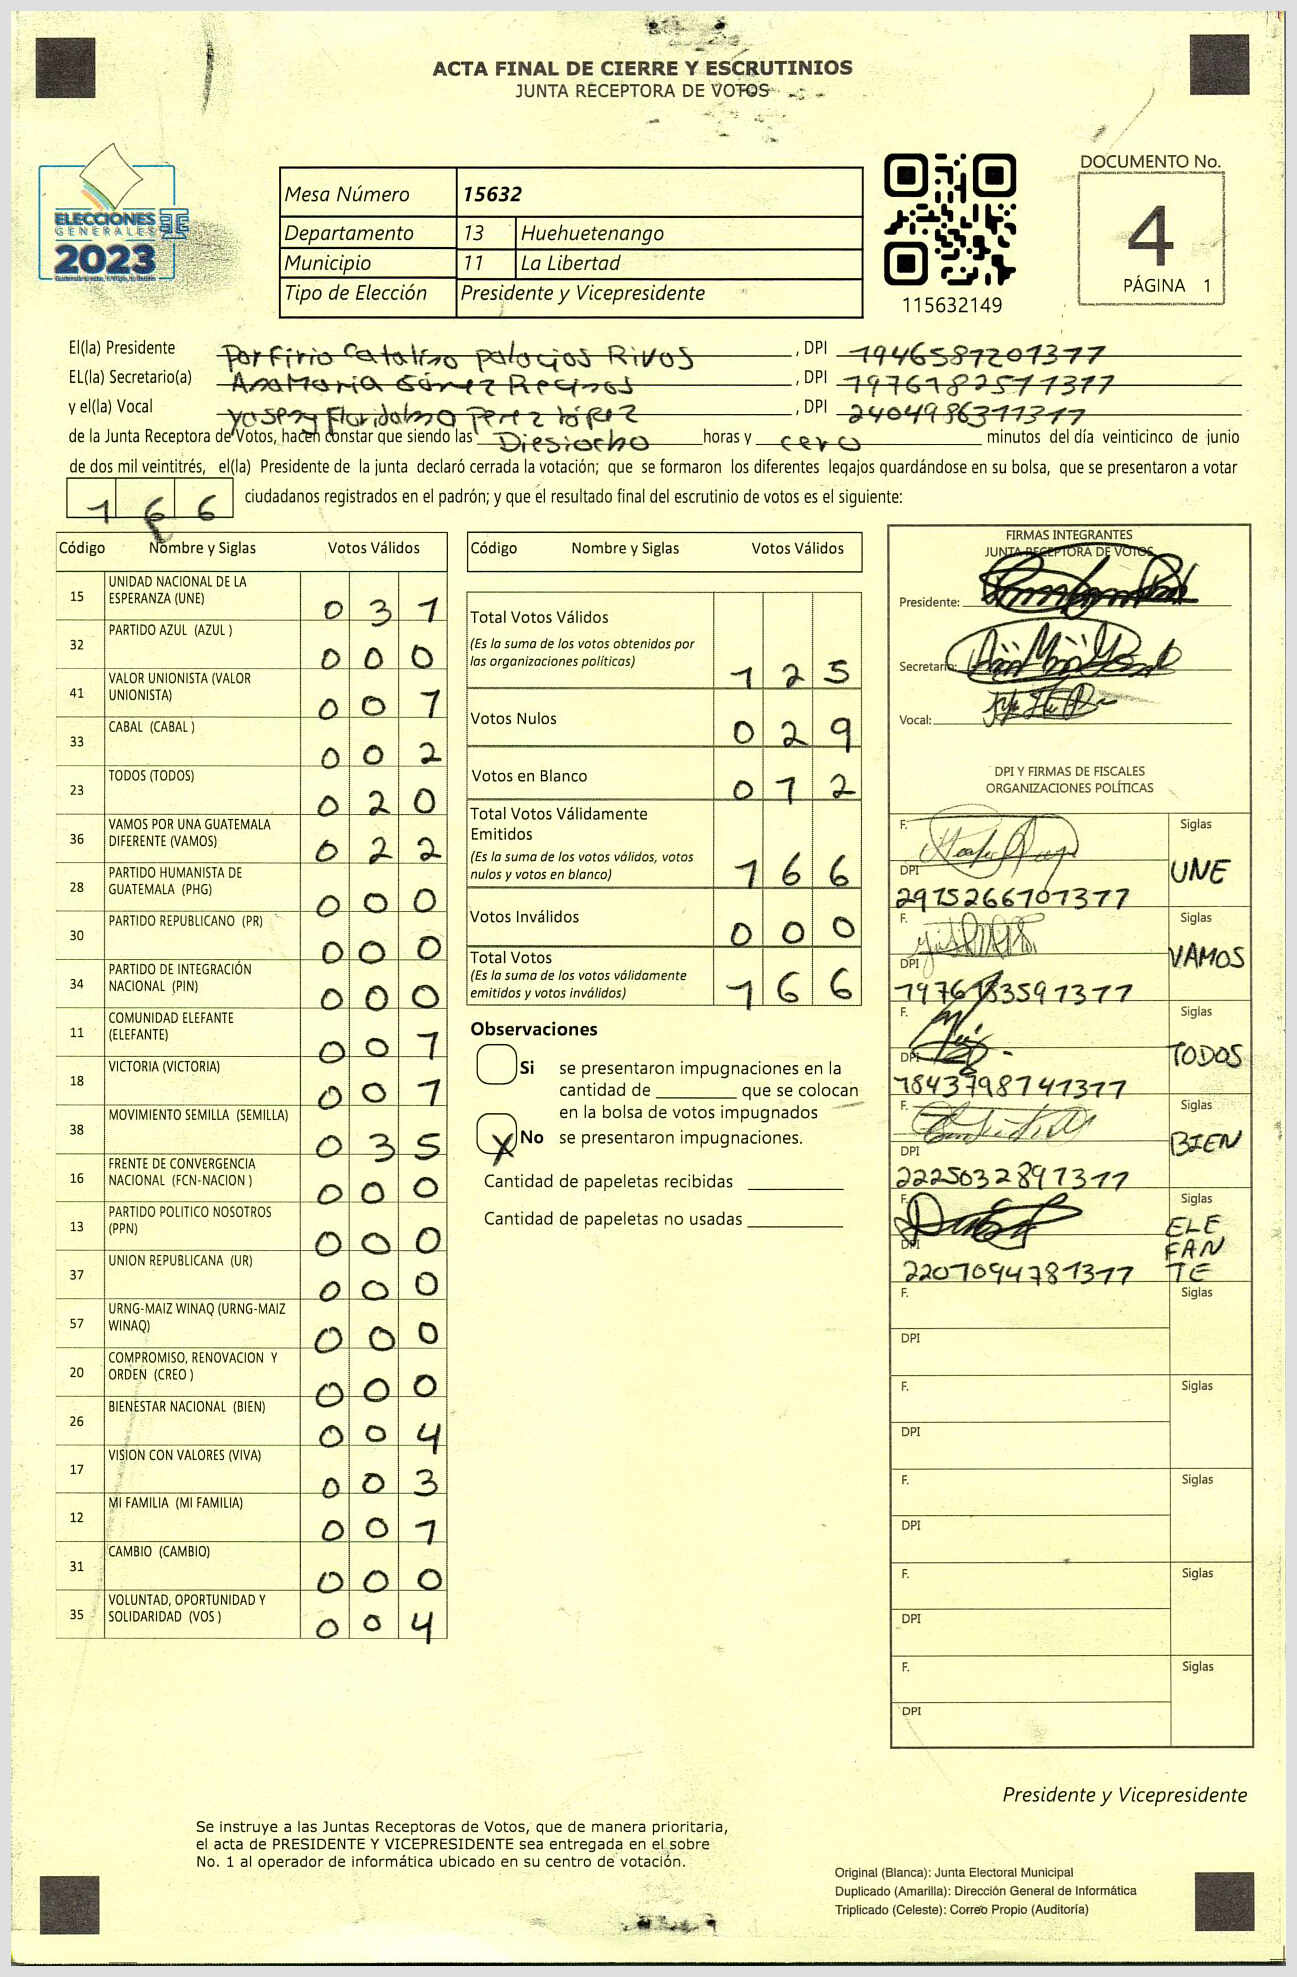 ACTA FINAL DE CIERRE Y ESCRUTINIOS
JUNTA RECEPTORA DE VOTOS
ELECCIONES
GENERALES
2023
Mesa Número 15632
Departamento 13 Huehuetenango
Municipio 11 La Libertad
Tipo de Elección Presidente y Vicepresidente
115632149
DOCUMENTO No.
4
PÁGINA 1
El(la) Presidente Porfirio Catalino palacios Rivas, DPI 1946587201311
EL(la) Secretario(a) AnaMaria Gómez Recinos, DPI 1976182511311
y el(la) Vocal Floridalma Perez López, DPI 2404986311311
de la Junta Receptora de Votos, hacen constar que siendo las Diesiocho horas y cero minutos del día veinticinco de junio
de dos mil veintitrés, el(la) Presidente de la junta declaró cerrada la votación; que se formaron los diferentes legajos quardándose en su bolsa, que se presentaron a votar
166 ciudadanos registrados en el padrón; y que el resultado final del escrutinio de votos es el siguiente:
Código Nombre y Siglas Votos Válidos
15 UNIDAD NACIONAL DE LA
ESPERANZA (UNE) 031
32 PARTIDO AZUL (AZUL ) 000
41 VALOR UNIONISTA (VALOR
UNIONISTA) 001
33 CABAL (CABAL ) 002
23 TODOS (TODOS) 020
36 VAMOS POR UNA GUATEMALA
DIFERENTE (VAMOS) 022
28 PARTIDO HUMANISTA DE
GUATEMALA (PHG) 000
30 PARTIDO REPUBLICANO (PR) 000
34 PARTIDO DE INTEGRACIÓN
NACIONAL (PIN) 000
11 COMUNIDAD ELEFANTE
(ELEFANTE) 001
18 VICTORIA (VICTORIA) 001
38 MOVIMIENTO SEMILLA (SEMILLA) 035
16 FRENTE DE CONVERGENCIA
NACIONAL (FCN-NACION ) 000
13 PARTIDO POLITICO NOSOTROS
(PPN) 000
37 UNION REPUBLICANA (UR) 000
57 URNG-MAIZ WINAQ (URNG-MAIZ
WINAQ) 000
20 COMPROMISO, RENOVACION Y
ORDEN (CREO ) 000
26 BIENESTAR NACIONAL (BIEN) 004
17 VISION CON VALORES (VIVA) 003
12 MI FAMILIA (MI FAMILIA) 001
31 CAMBIO (CAMBIO) 000
35 VOLUNTAD, OPORTUNIDAD Y
SOLIDARIDAD (VOS ) 004
Código Nombre y Siglas Votos Válidos
Total Votos Válidos
(Es la suma de los votos obtenidos por
las organizaciones políticas) 125
Votos Nulos 029
Votos en Blanco 012
Total Votos Válidamente
Emitidos
(Es la suma de los votos válidos, votos
nulos y votos en blanco) 166
Votos Inválidos 000
Total Votos
(Es la suma de los votos válidamente
emitidos y votos inválidos) 166
Observaciones
Si se presentaron impugnaciones en la
cantidad de que se colocan
en la bolsa de votos impugnados
X No se presentaron impugnaciones.
Cantidad de papeletas recibidas
Cantidad de papeletas no usadas
FIRMAS INTEGRANTES
JUNTA RECEPTORA DE VOTOS
Presidente:
Secretario:
Vocal:
DPI Y FIRMAS DE FISCALES
ORGANIZACIONES POLÍTICAS
F. Siglas
DPI UNE
2915266701311
F. Siglas
DPI VAMOS
F. Siglas
DPI TODOS
1843798141311
F. Siglas
DPI BIEN
2225032891311
F. Siglas
DPI ELE
FAN
2207094781311 TE
F. Siglas
DPI
F. Siglas
DPI
F. Siglas
DPI
F. Siglas
DPI
F. Siglas
DPI
Presidente y Vicepresidente
Se instruye a las Juntas Receptoras de Votos, que de manera prioritaria,
el acta de PRESIDENTE Y VICEPRESIDENTE sea entregada en el sobre
No. 1 al operador de informática ubicado en su centro de votación.
Original (Blanca): Junta Electoral Municipal
Duplicado (Amarilla): Dirección General de Informática
Triplicado (Celeste): Correo Propio (Auditoría)